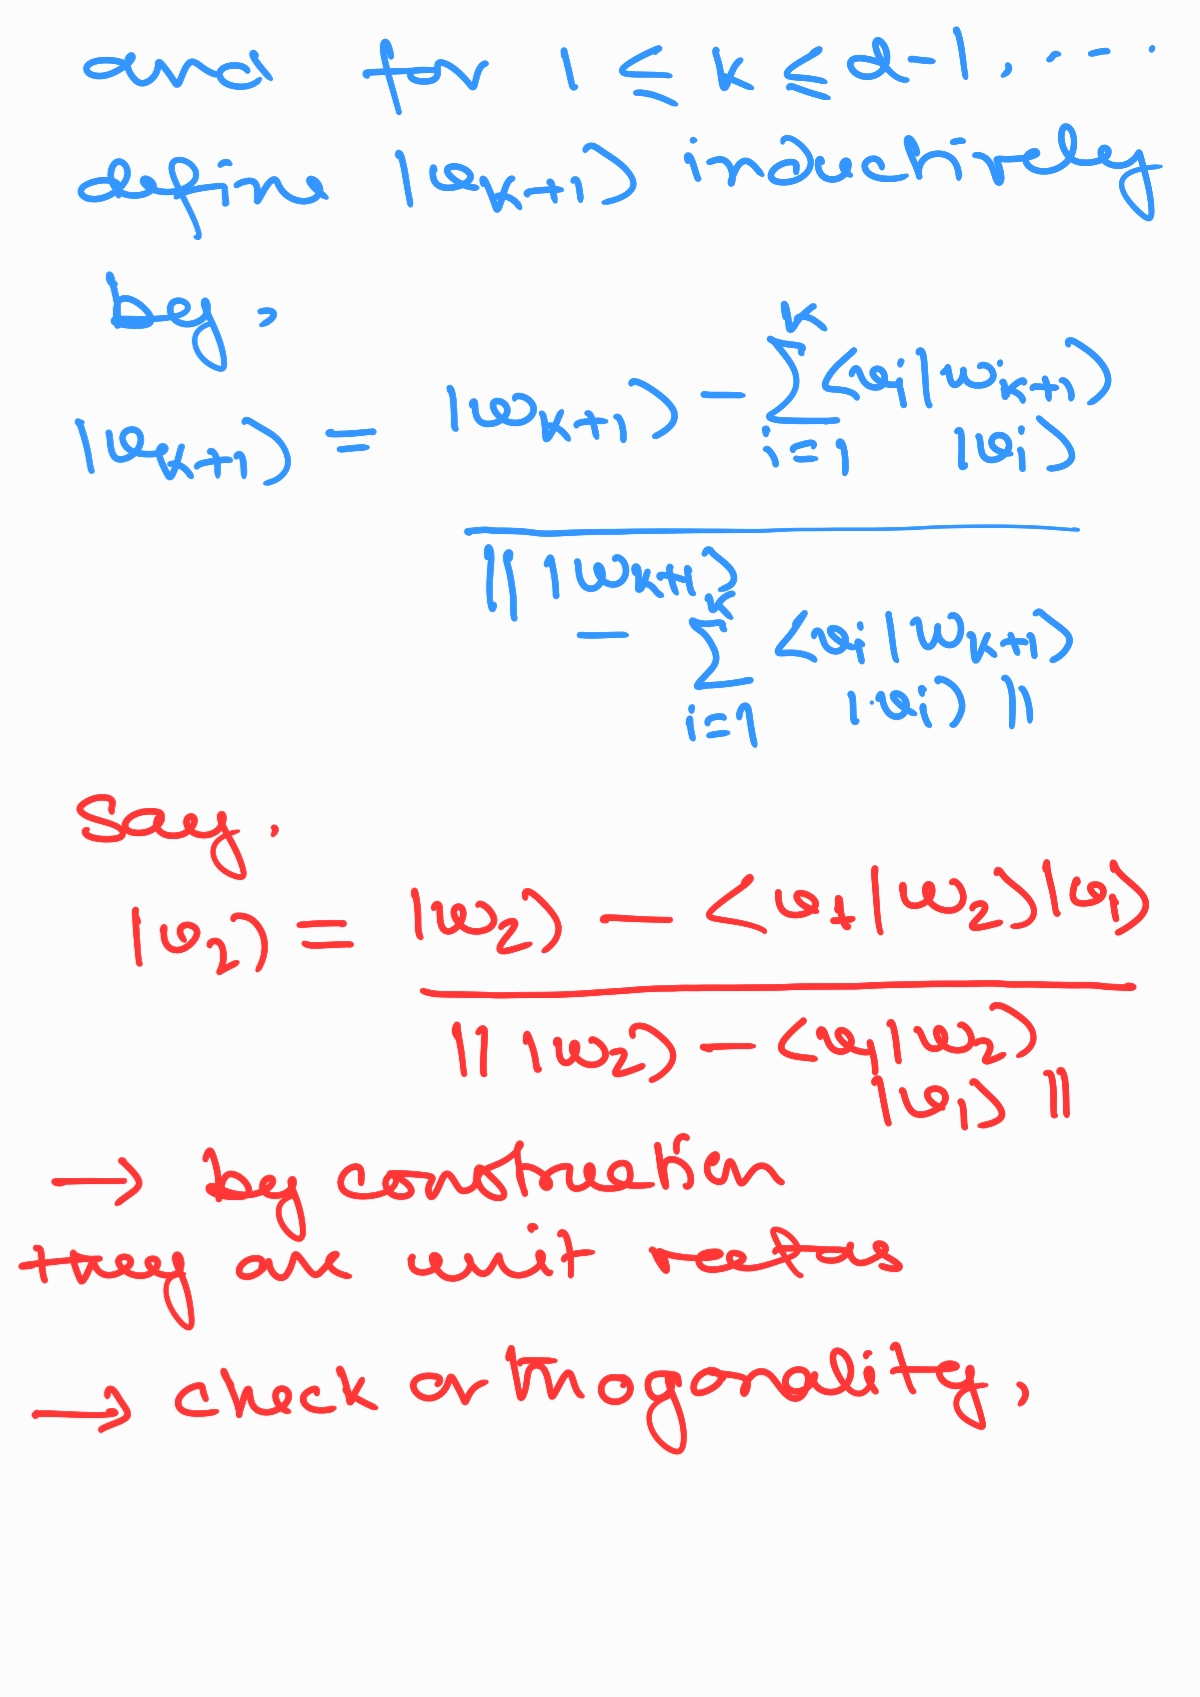 and for 1 ≤ k ≤ d-1, ...
define |v_{k+1}⟩ inductively
by,
|v_{k+1}⟩ = \frac{|w_{k+1}⟩ - \sum_{i=1}^{k} ⟨v_i|w_{k+1}⟩ |v_i⟩}{|| |w_{k+1}⟩ - \sum_{i=1}^{k} ⟨v_i|w_{k+1}⟩ |v_i⟩ ||}
Say.
|v_2⟩ = \frac{|w_2⟩ - ⟨v_1|w_2⟩|v_1⟩}{|| |w_2⟩ - ⟨v_1|w_2⟩ |v_1⟩ ||}
→ by construction
they are unit vectors
→ check orthogonality,